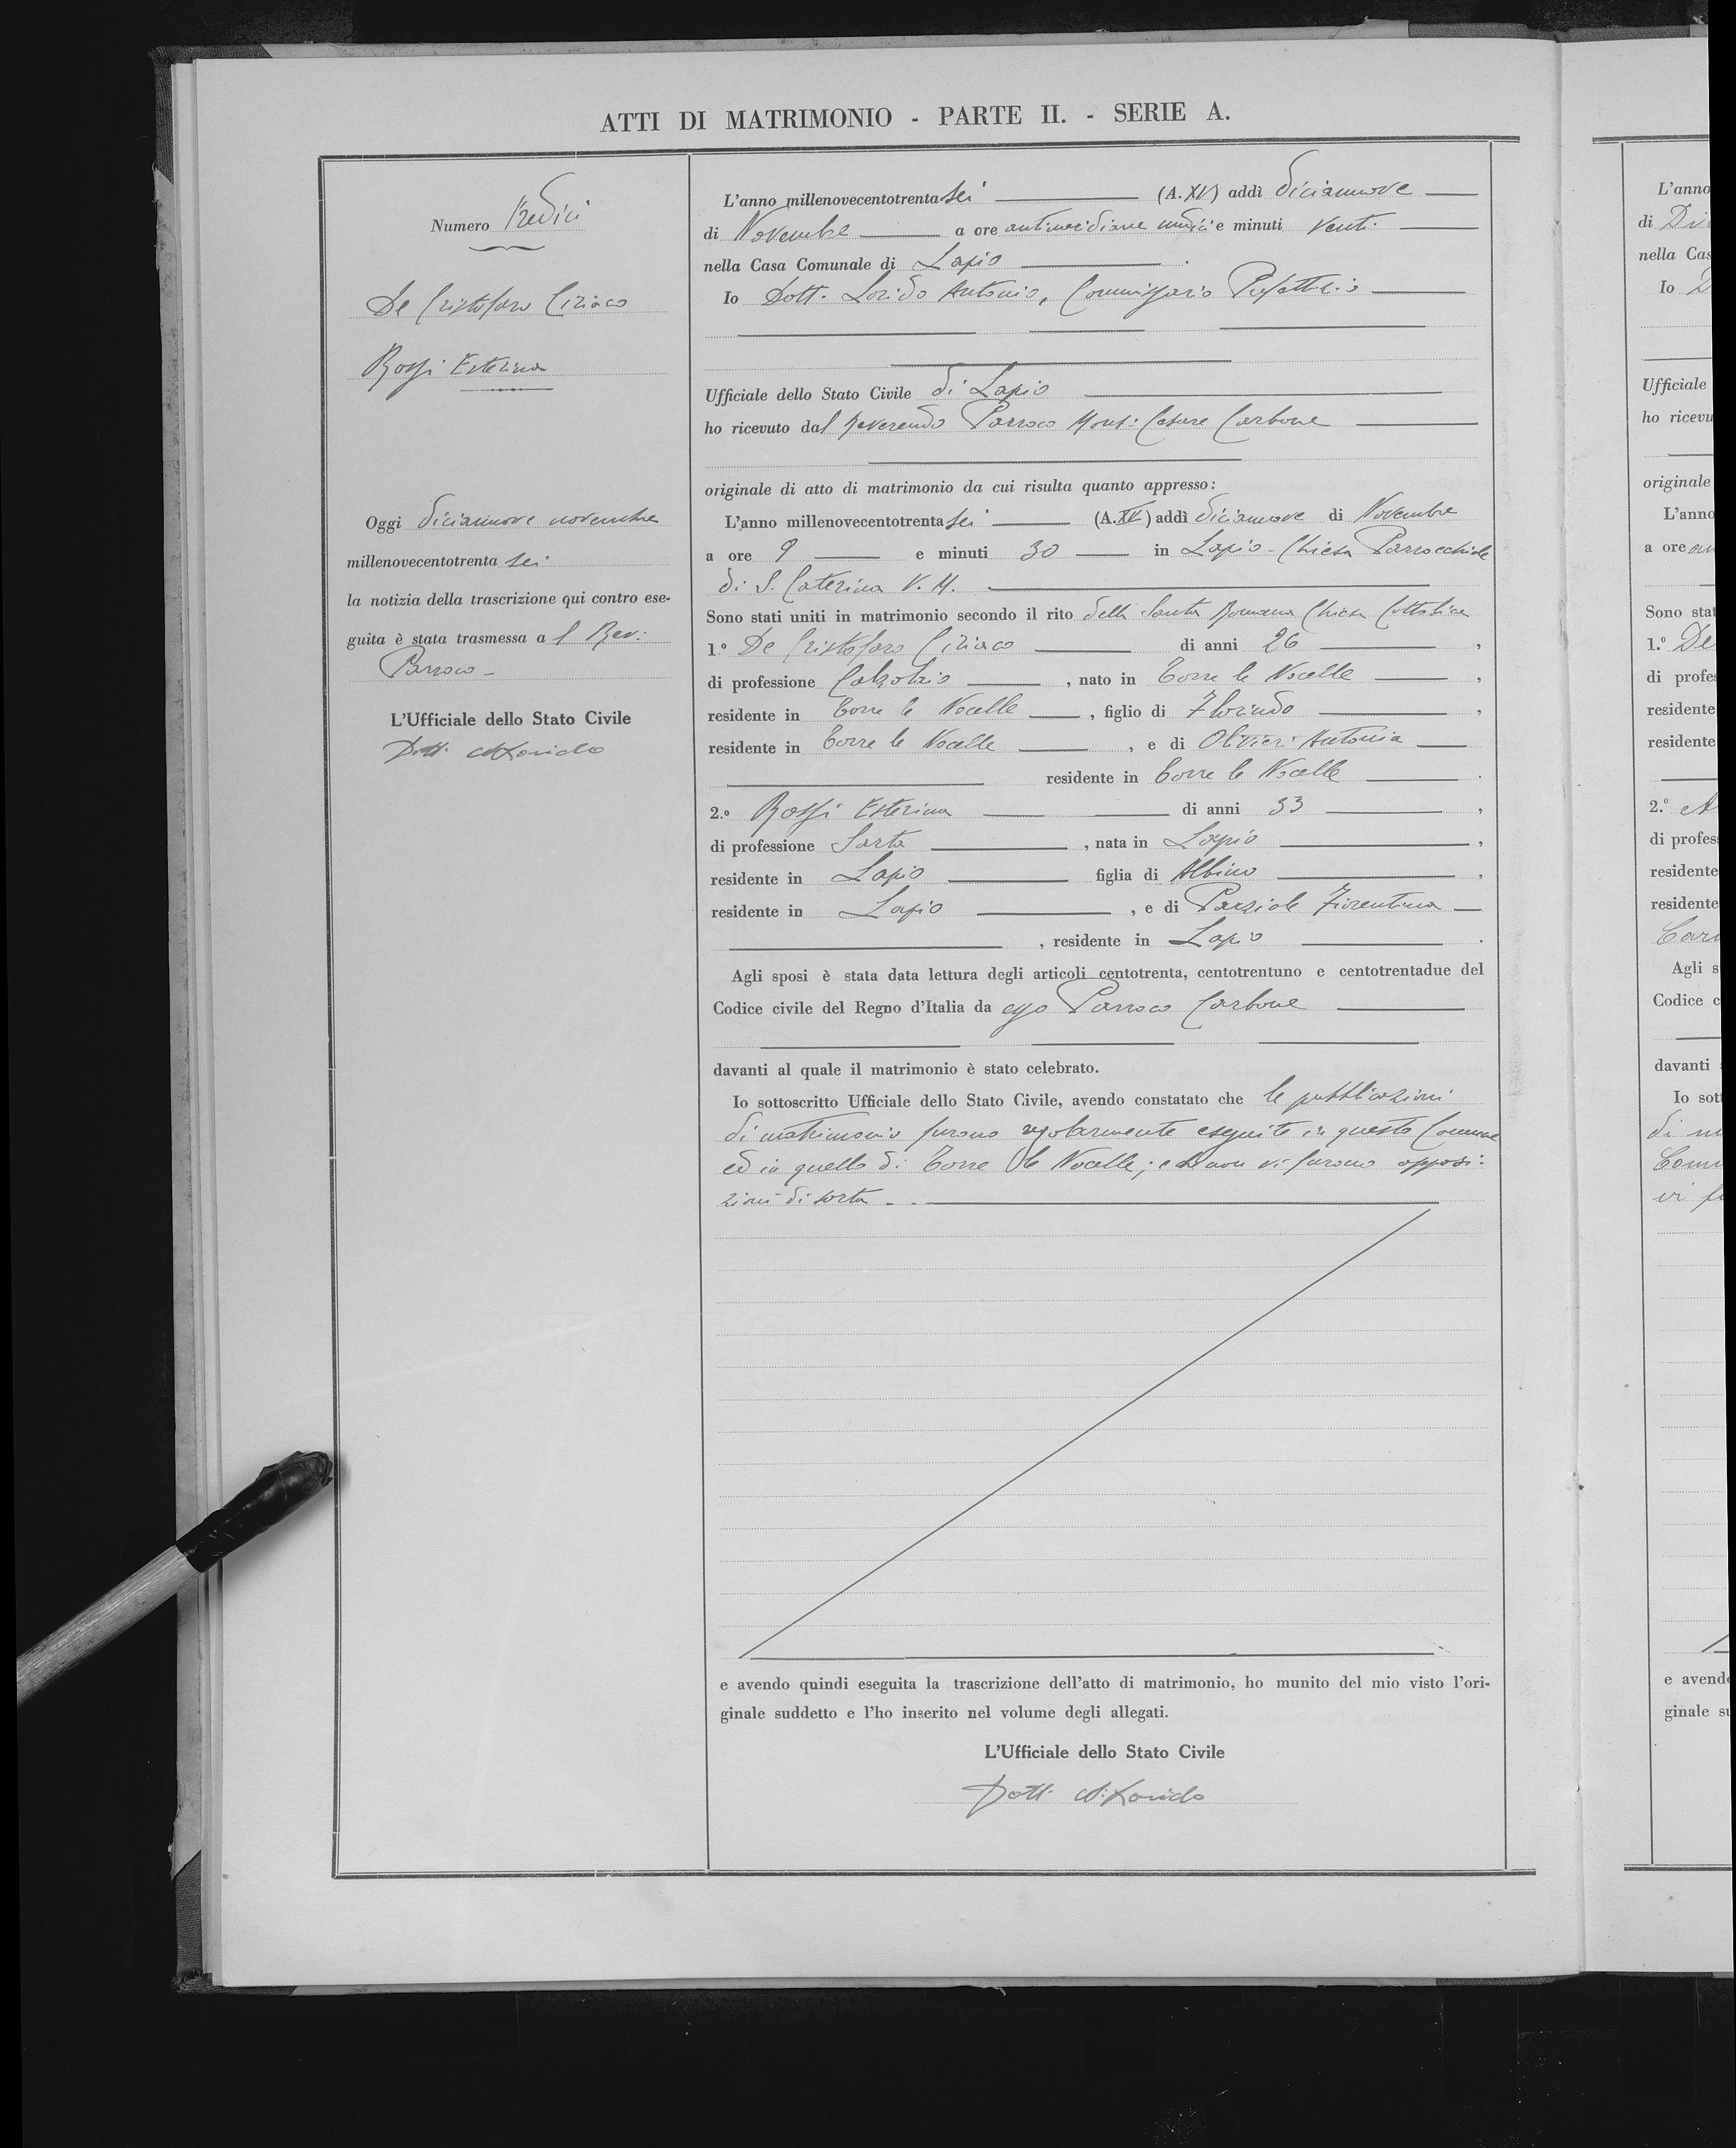 ATTI DI MATRIMONIO - PARTE II. - SERIE A.
Numero Tredici
De Cristofaro Ciriaco
Rossi Esterina
Oggi diciannove novembre
millenovecentotrenta sei
la notizia della trascrizione qui contro ese-
guita è stata trasmessa a l Rev:
Parroco -
L'Ufficiale dello Stato Civile
Dott. A. Lorido
L'anno millenovecentotrenta sei (A. XV) addì diciannove
di Novembre a ore antimeridiane undici e minuti venti
nella Casa Comunale di Lapio .
Io Dott. Lorido Antonio, Commissario Prefettizio
Ufficiale dello Stato Civile di Lapio
ho ricevuto dal Reverendo Parroco Mons: Cesare Carbone
originale di atto di matrimonio da cui risulta quanto appresso:
L'anno millenovecentotrenta sei (A. XV) addì diciannove di Novembre
a ore 9 e minuti 30 in Lapio - Chiesa Parrocchiale
di S. Caterina V. M.
Sono stati uniti in matrimonio secondo il rito della Santa Romana Chiesa Cattolica
1.° De Cristofaro Ciriaco di anni 26 ,
di professione Calzolaio , nato in Torre le Nocelle ,
residente in Torre le Nocelle , figlio di Florindo ,
residente in Torre le Nocelle , e di Olivieri Antonia
residente in Torre le Nocelle .
2.° Rossi Esterina di anni 33 ,
di professione Sarta , nata in Lapio ,
residente in Lapio figlia di Albino ,
residente in Lapio , e di Parziale Fiorentina
, residente in Lapio .
Agli sposi è stata data lettura degli articoli centotrenta, centotrentuno e centotrentadue del
Codice civile del Regno d'Italia da esso Parroco Carbone
davanti al quale il matrimonio è stato celebrato.
Io sottoscritto Ufficiale dello Stato Civile, avendo constatato che le pubblicazioni
di matrimonio furono regolarmente eseguite in questo Comune
ed in quello di Torre le Nocelle; e che non vi furono opposi-
zioni di sorta - .
e avendo quindi eseguita la trascrizione dell'atto di matrimonio, ho munito del mio visto l'ori-
ginale suddetto e l'ho inserito nel volume degli allegati.
L'Ufficiale dello Stato Civile
Dott. A. Lorido
L'anno
di
nella Cas
Io
Ufficiale
ho ricevu
originale
L'anno
a ore
Sono stat
1.° De
di profes
residente
residente
2.° A
di profess
residente
residente
Agli s
Codice c
davanti
Io sott
di
vi
e avendo
ginale su